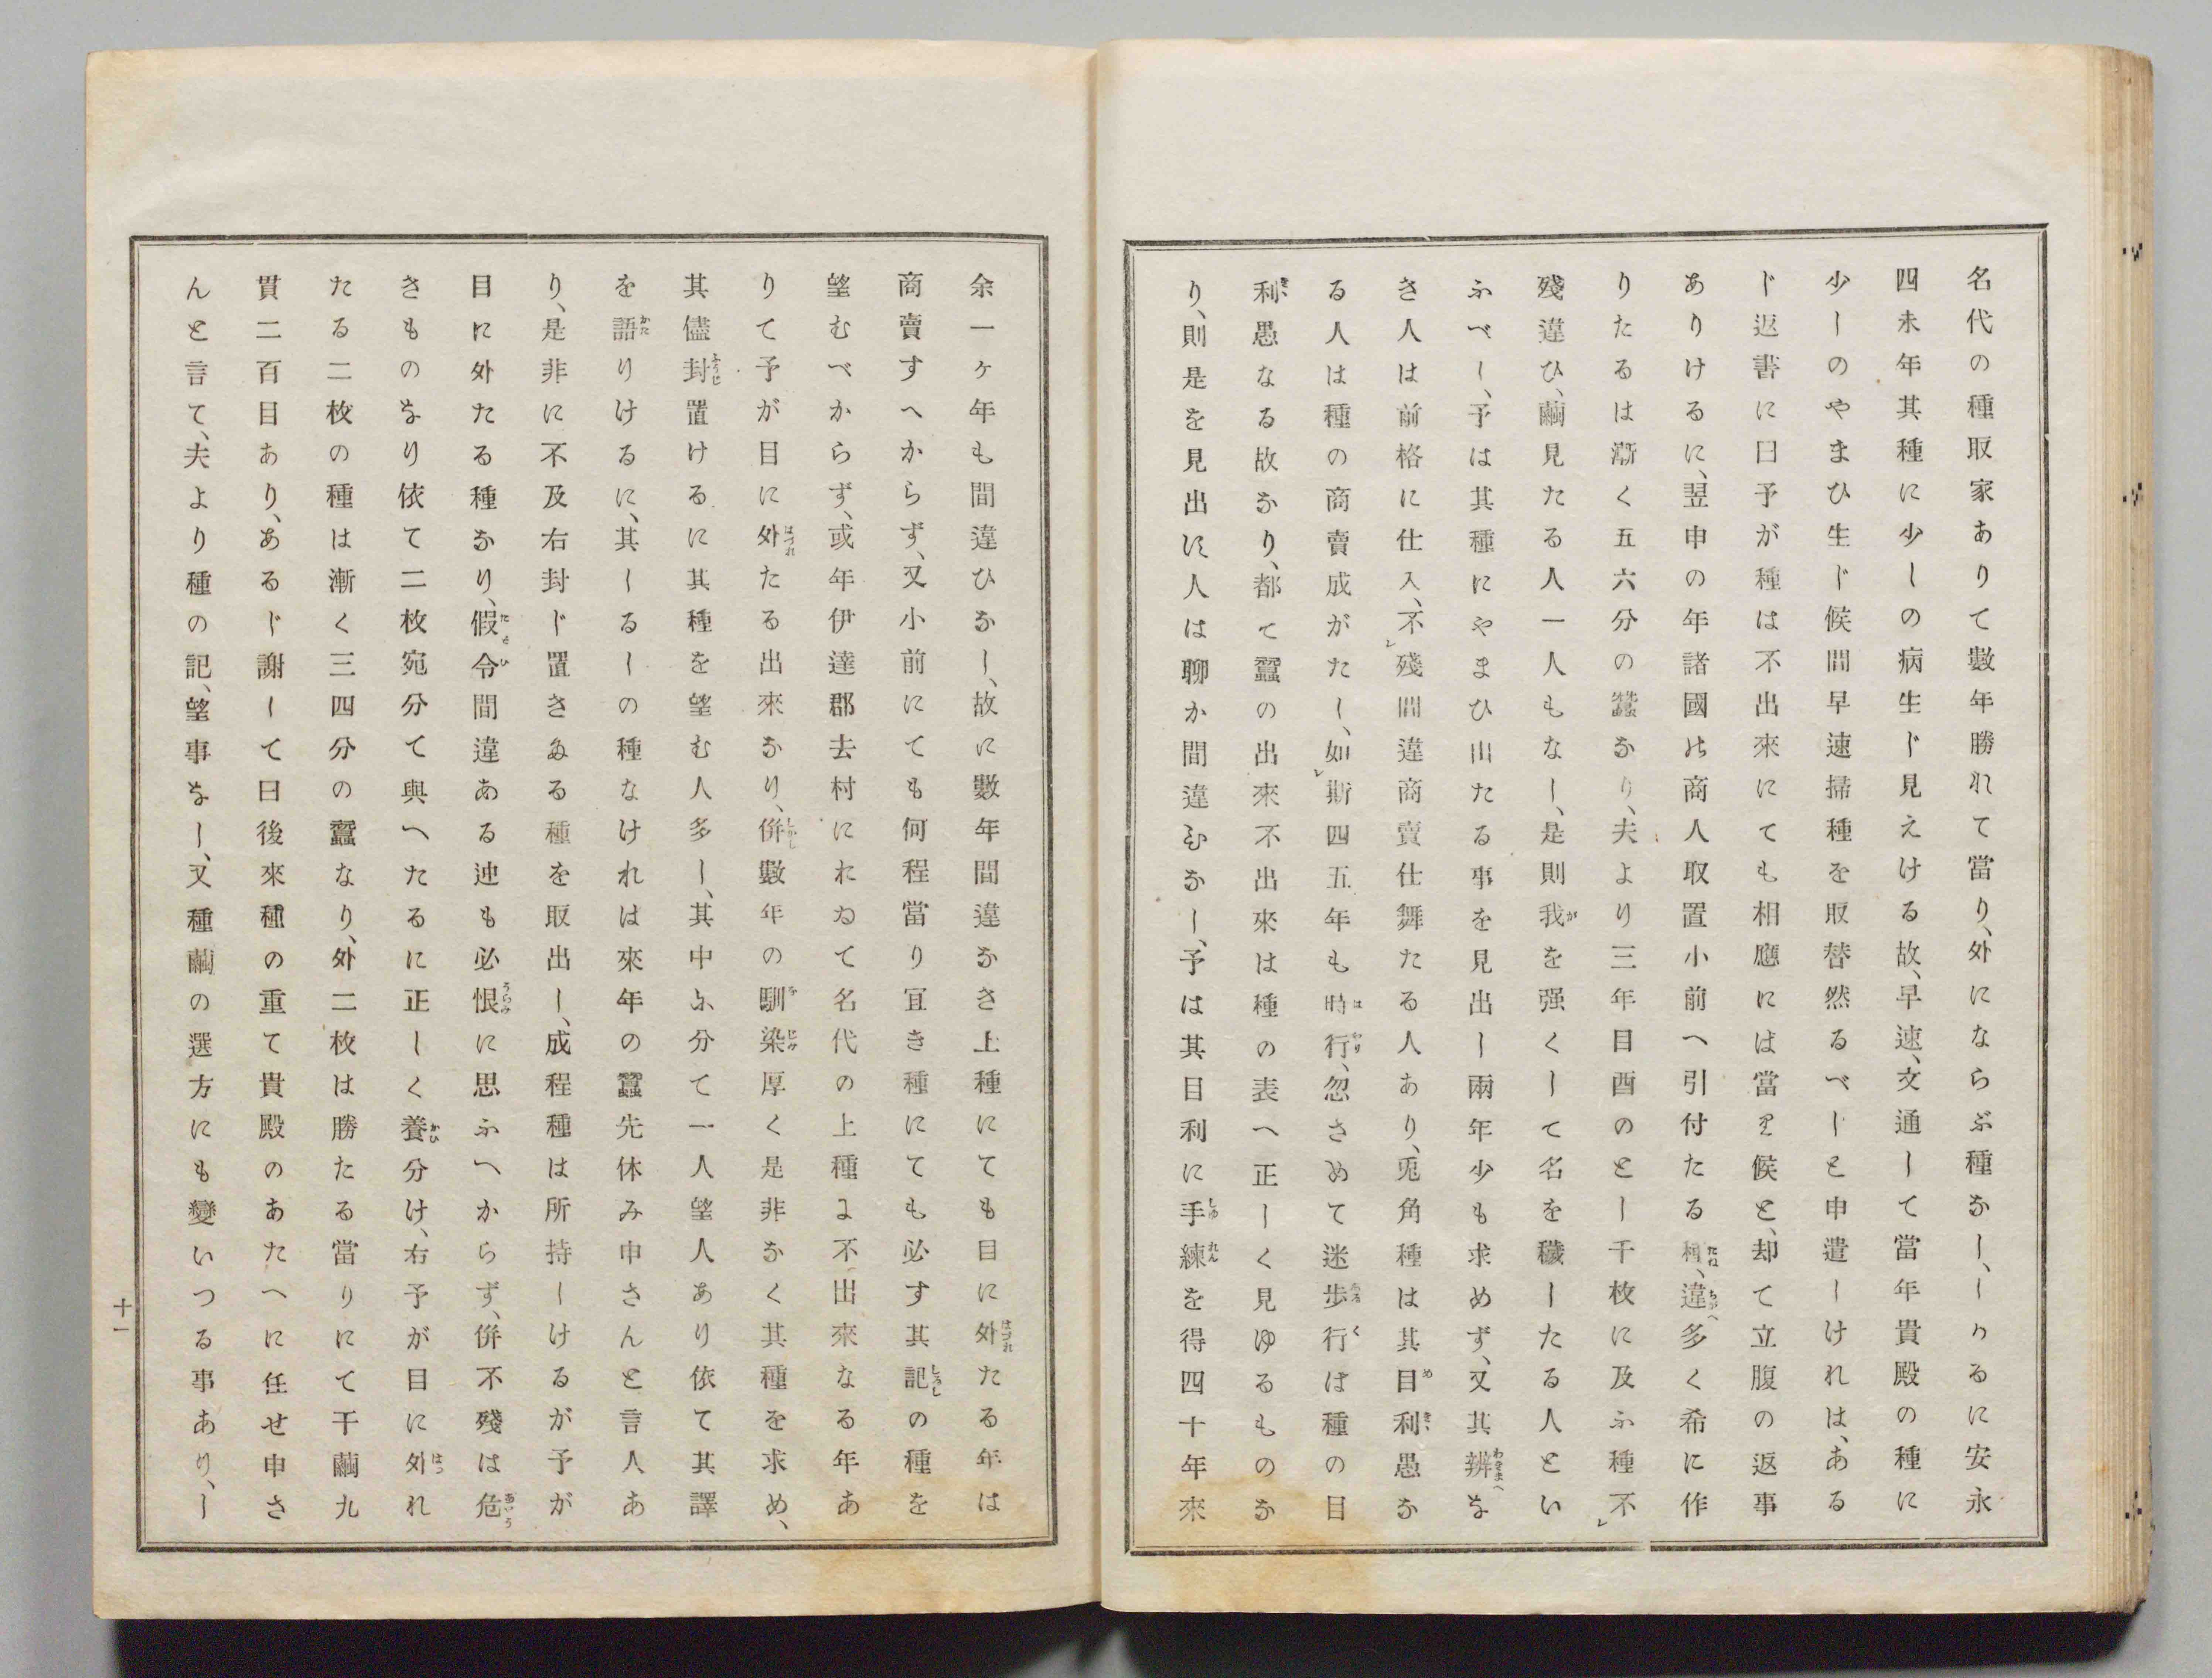 名代の種取家ありて數年勝れて當り、外にならぶ種なし、しかるに安永
四未年其種に少しの病生じ見えける故、早速、文通して當年貴殿の種に
少しのやまひ生じ候間早速掃種を取替然るべしと申遣しければ、ある
じ返書に曰予が種は不出來にても相應には當り候と、却て立腹の返事
ありけるに、翌申の年諸國の商人取置小前へ引付たる、種、違多く希に作
りたるは漸く五六分の蠶なり、夫より三年目酉のとし千枚に及ふ種不
殘違ひ、繭見たる人一人もなし、是則我を强くして名を穢したる人とい
ふべし、予は其種にやまひ出たる事を見出し兩年少も求めず、又其辨な
き人は前格に仕入、不殘間違商賣仕舞たる人あり、兎角種は其目利愚な
る人は種の商賣成がたし、如斯四五年も時行、忽さめて迷歩行は種の目
利愚なる故なり、都て蠶の出來不出來は種の表へ正しく見ゆるものな
り、則是を見出す人は聊か間違ひなし、予は其目利に手練を得四十年來
余一ヶ年も間違ひなし、故に數年間違なき上種にても目に外たる年は
商賣すへからず、又小前にても何程當り宜き種にても必す其記の種を
望むべからず、或年伊達郡去村にれゐて名代の上種よ不出來なる年あ
りて予が目に外たる出來なり、併數年の馴染厚く是非なく其種を求め、
其儘封置けるに其種を望む人多し、其中ふ分て一人望人あり依て其譯
を語りけるに、其しるしの種なければ來年の蠶先休み申さんと言人あ
り、是非に不及右封じ置きゐる種を取出し、成程種は所持しけるが予が
目に外たる種なり、假令間違ある迚も必恨に思ふへからず、併不殘は危
きものなり依て二枚宛分て與へたるに正しく養分け、右予が目に外れ
たる二枚の種は漸く三四分の蠶なり、外二枚は勝たる當りにて干繭九
貫二百目あり、あるじ謝して曰後來種の重て貴殿のあたへに任せ申さ
んと言て、夫より種の記、望事なし、又種繭の選方にも變いつる事あり、し
十一